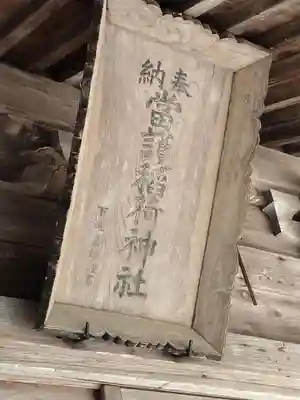 奉納
當護稲荷神社